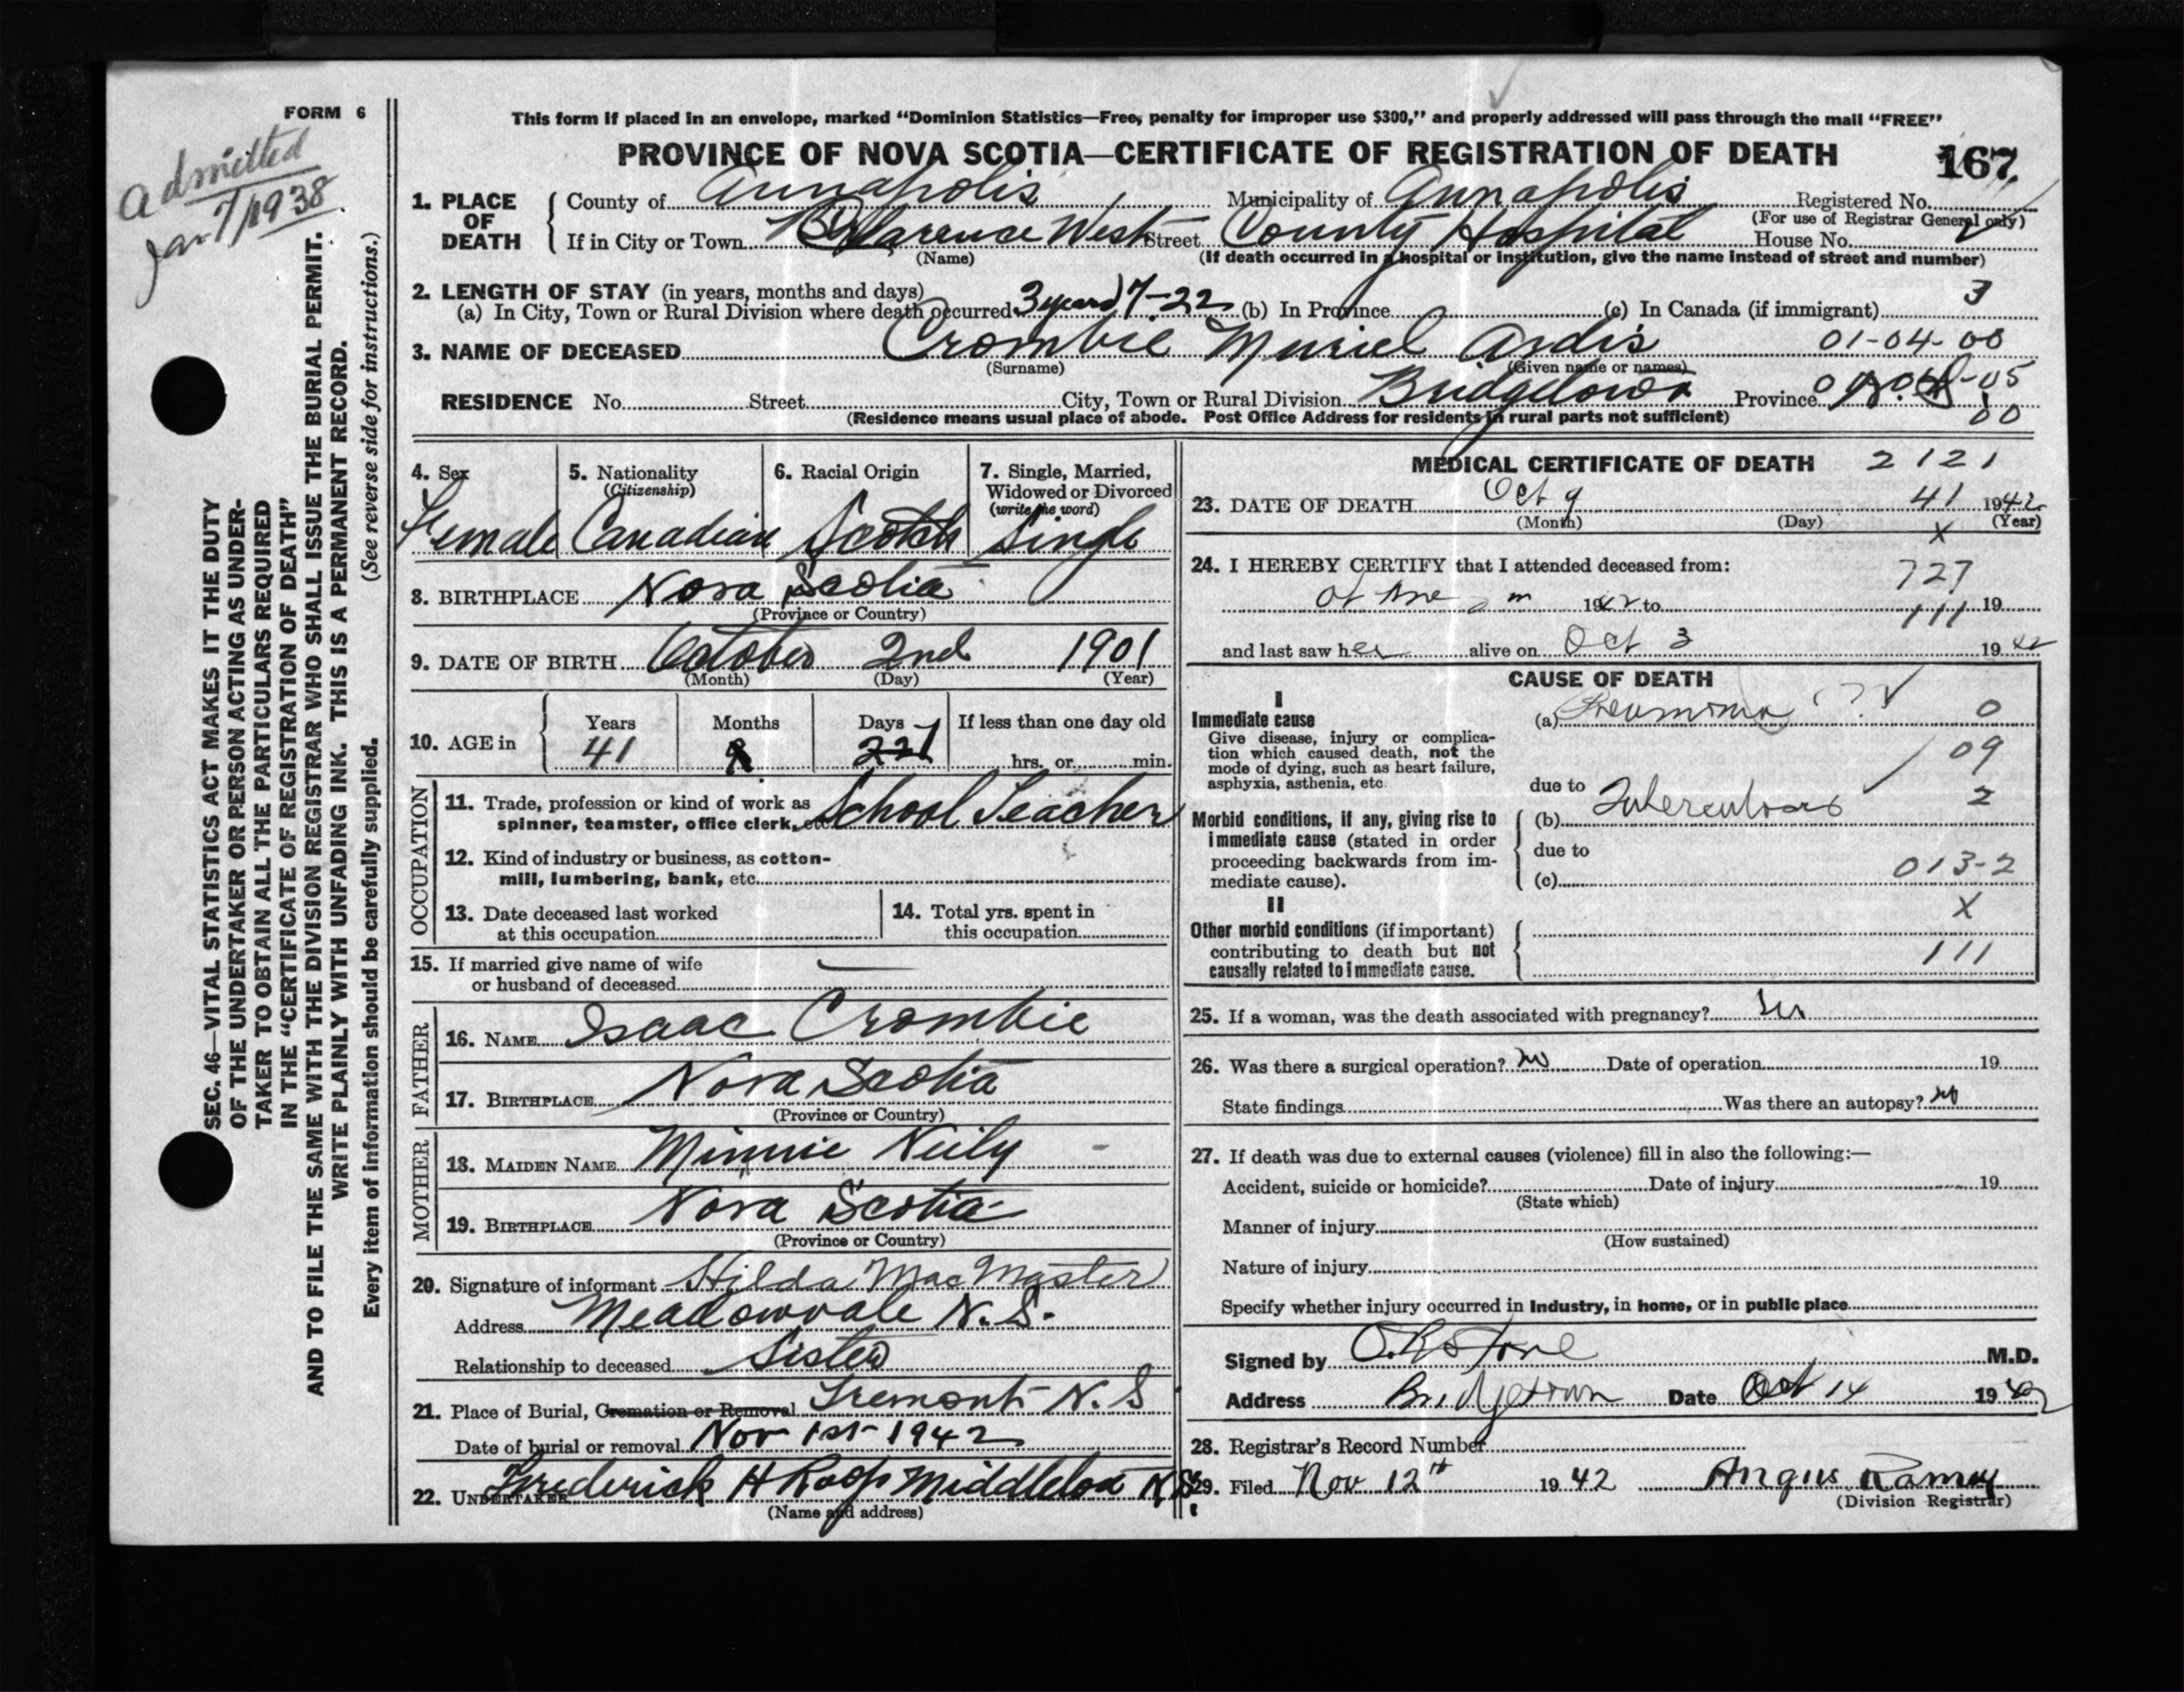 FORM 6
Admitted
Jan 7/1938
This form if placed in an envelope, marked “Dominion Statistics—Free, penalty for improper use $300,” and properly addressed will pass through the mail “FREE”
PROVINCE OF NOVA SCOTIA—CERTIFICATE OF REGISTRATION OF DEATH 167
1. PLACE OF DEATH County of Annapolis Municipality of Annapolis Registered No.
(For use of Registrar General only)
If in City or Town Clarence West Street County Hospital House No.
(Name) (If death occurred in a hospital or institution, give the name instead of street and number)
2. LENGTH OF STAY (in years, months and days) 3
(a) In City, Town or Rural Division where death occurred 3 years 7-22 (b) In Province (c) In Canada (if immigrant)
3. NAME OF DECEASED Crombie Muriel Ardis 01-04-00
(Surname) (Given name or names)
RESIDENCE No. Street City, Town or Rural Division Bridgetown Province N.S.
(Residence means usual place of abode. Post Office Address for residents in rural parts not sufficient) 00
4. Sex 5. Nationality (Citizenship) 6. Racial Origin 7. Single, Married, Widowed or Divorced (write the word)
Female Canadian Scotch Single
8. BIRTHPLACE Nova Scotia
(Province or Country)
9. DATE OF BIRTH October 2nd 1901
(Month) (Day) (Year)
10. AGE in Years Months Days If less than one day old
41 hrs. or min.
OCCUPATION
11. Trade, profession or kind of work as spinner, teamster, office clerk, etc. School Teacher
12. Kind of industry or business, as cotton-mill, lumbering, bank, etc.
13. Date deceased last worked at this occupation 14. Total yrs. spent in this occupation
15. If married give name of wife or husband of deceased —
FATHER
16. NAME Isaac Crombie
17. BIRTHPLACE Nova Scotia
(Province or Country)
MOTHER
18. MAIDEN NAME Minnie Neily
19. BIRTHPLACE Nova Scotia
(Province or Country)
20. Signature of informant Hilda MacMaster
Address Meadowvale N.S.
Relationship to deceased Sister
21. Place of Burial, Cremation or Removal Tremont N.S
Date of burial or removal Nov 1st 1942
22. UNDERTAKER Frederick H Roop Middleton N.S.
(Name and address)
MEDICAL CERTIFICATE OF DEATH 2121
23. DATE OF DEATH Oct 9 41 1942
(Month) (Day) (Year)
X
24. I HEREBY CERTIFY that I attended deceased from: 727
1942 to 111 19
and last saw her alive on Oct 3 1942
CAUSE OF DEATH
I
Immediate cause (a) Pneumonia (?) 0
Give disease, injury or complication which caused death, not the mode of dying, such as heart failure, asphyxia, asthenia, etc. 09
due to 2
Morbid conditions, if any, giving rise to immediate cause (stated in order proceeding backwards from immediate cause). (b) Tuberculosis
due to
(c) 013-2
II X
Other morbid conditions (if important) contributing to death but not causally related to immediate cause. 111
25. If a woman, was the death associated with pregnancy?
26. Was there a surgical operation? no Date of operation 19
State findings Was there an autopsy? no
27. If death was due to external causes (violence) fill in also the following:—
Accident, suicide or homicide? Date of injury 19
(State which)
Manner of injury
(How sustained)
Nature of injury
Specify whether injury occurred in industry, in home, or in public place
Signed by M.D.
Address Bridgetown Date Oct 14 1942
28. Registrar's Record Number
29. Filed Nov 12th 1942 Angus Ramey
(Division Registrar)
SEC. 46—VITAL STATISTICS ACT MAKES IT THE DUTY
OF THE UNDERTAKER OR PERSON ACTING AS UNDER-
TAKER TO OBTAIN ALL THE PARTICULARS REQUIRED
IN THE “CERTIFICATE OF REGISTRATION OF DEATH”
AND TO FILE THE SAME WITH THE DIVISION REGISTRAR WHO SHALL ISSUE THE BURIAL PERMIT.
WRITE PLAINLY WITH UNFADING INK. THIS IS A PERMANENT RECORD.
Every item of information should be carefully supplied. (See reverse side for instructions.)